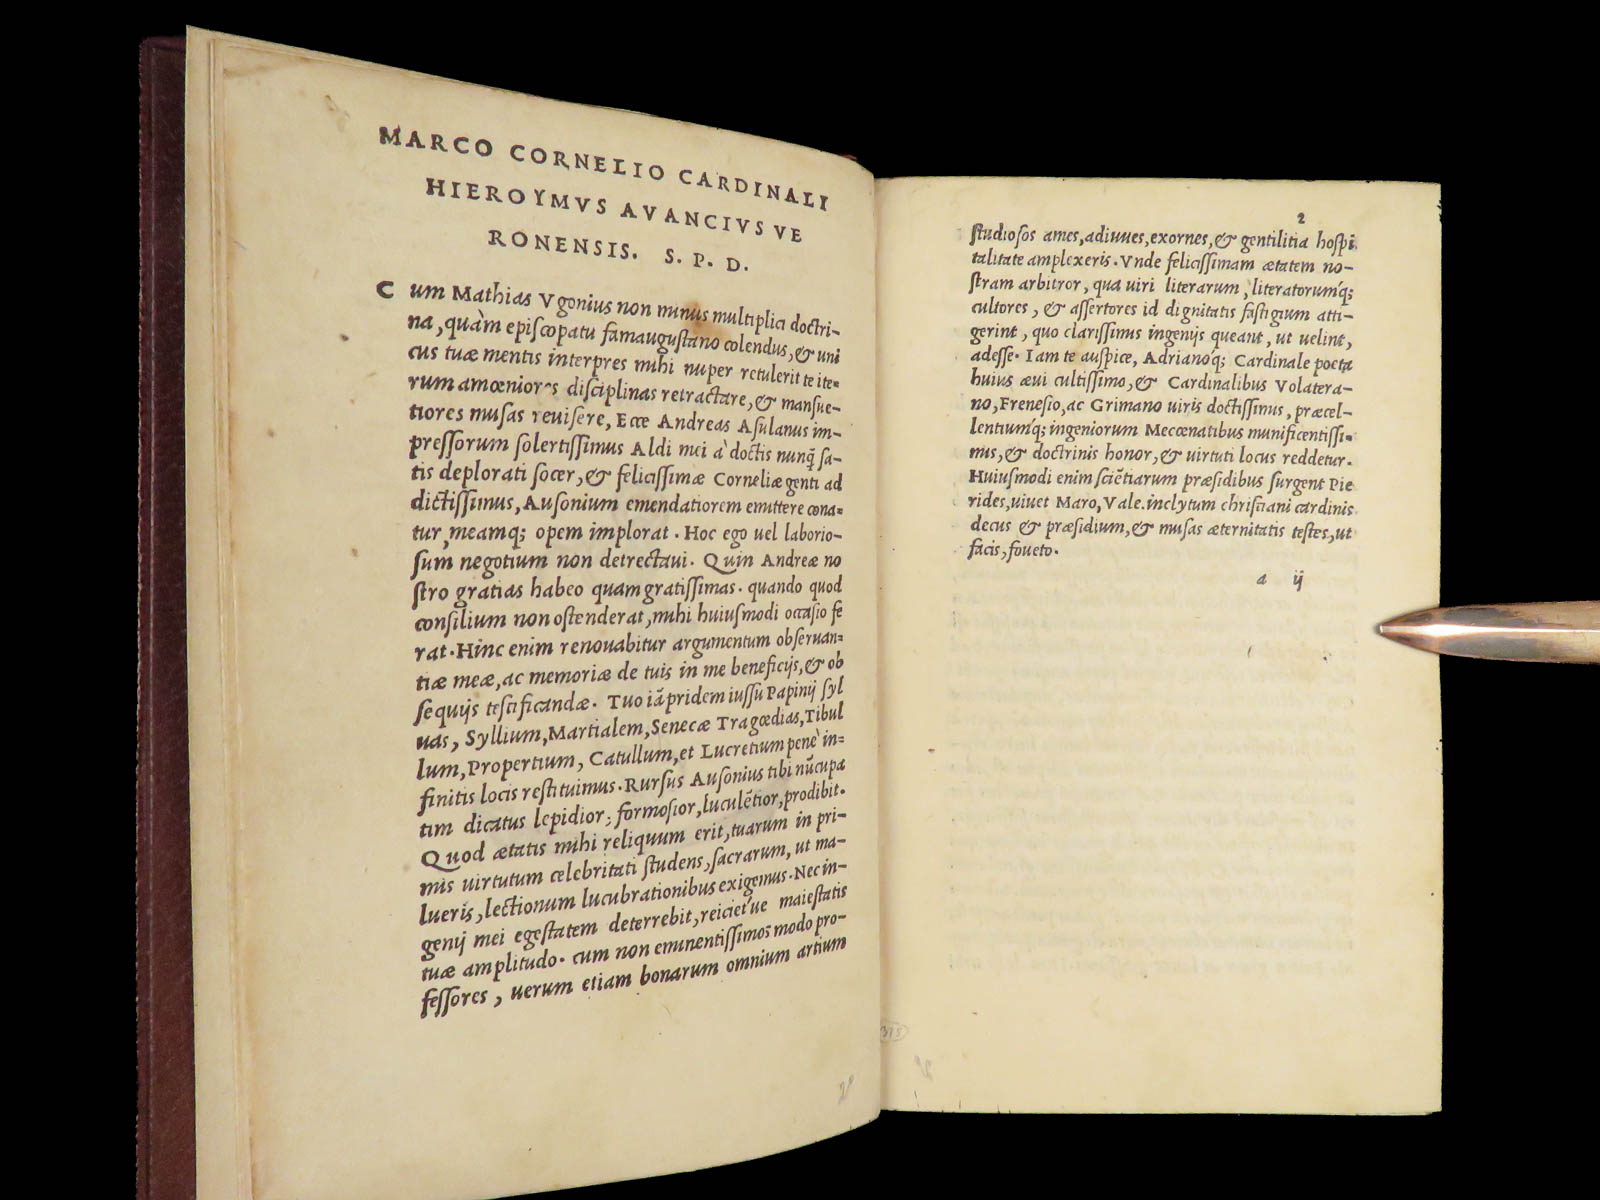 MARCO CORNELIO CARDINALI
HIEROYMVS AVANCIVS VE
RONENSIS. S. P. D.
C um Mathias Vgonius non minus multiplici doctri-
na, quàm episcopatu famaugustano colendus, & uni
cus tuæ mentis interpres mihi nuper retulerit te ite-
rum amœniores disciplinas retractare, & mansue-
tiores musas reuisere, Ecce Andreas Asulanus im-
pressorum solertissimus Aldi mei à doctis nunq̃ sa-
tis deplorati socer, & felicissimæ Corneliæ genti ad
dictissimus, Ausonium emendatiorem emittere cona-
tur, meamq; opem implorat. Hoc ego uel laborio-
sum negotium non detrectaui. Quin Andreæ no
stro gratias habeo quamgratissimas. quando quod
consilium non ostenderat, mihi huiusmodi occasio fe
rat. Hinc enim renouabitur argumentum obseruan-
tiæ meæ, ac memoriæ de tuis in me beneficijs, & ob
sequijs testificandæ. Tuo iã pridem iussu Papinij syl
uas, Syllium, Martialem, Senecæ Tragœdias, Tibul
lum, Propertium, Catullum, et Lucretium penè in-
finitis locis restituimus. Rursus Ausonius tibi nũcupa
tim dicatus lepidior, formosior, luculẽtior, prodibit.
Quod ætatis mihi reliquum erit, tuarum in pri-
mis uirtutum celebritati studens, sacrarum, ut ma-
lueris, lectionum lucubrationibus exigemus. Nec in-
genij mei egestatem deterrebit, reiciet'ue maiestatis
tuæ amplitudo. cum non eminentissimos modo pro-
fessores, uerum etiam bonarum omnium artium
2
studiosos ames, adiuues, exornes, & gentilitia hospi
talitate amplexeris. Vnde felicissimam ætatem no-
stram arbitror, qua uiri literarum, literatorumq;
cultores, & assertores id dignitatis fastigium atti-
gerint, quo clarissimus ingenijs queant, ut uelint,
adesse. Iam te auspice, Adrianoq; Cardinale poeta
huius æui cultissimo, & Cardinalibus Volatera-
no, Frenesio, ac Grimano uiris doctissimus, præcel-
lentiumq; ingeniorum Mecœnatibus munificentissi-
mus, & doctrinis honor, & uirtuti locus reddetur.
Huiusmodi enim sciẽtiarum præsidibus surgent Pie
rides, uiuet Maro, Vale. inclytum christiani cardinis
decus & præsidium, & musas æternitatis testes, ut
facis, foueto.
a ij
315